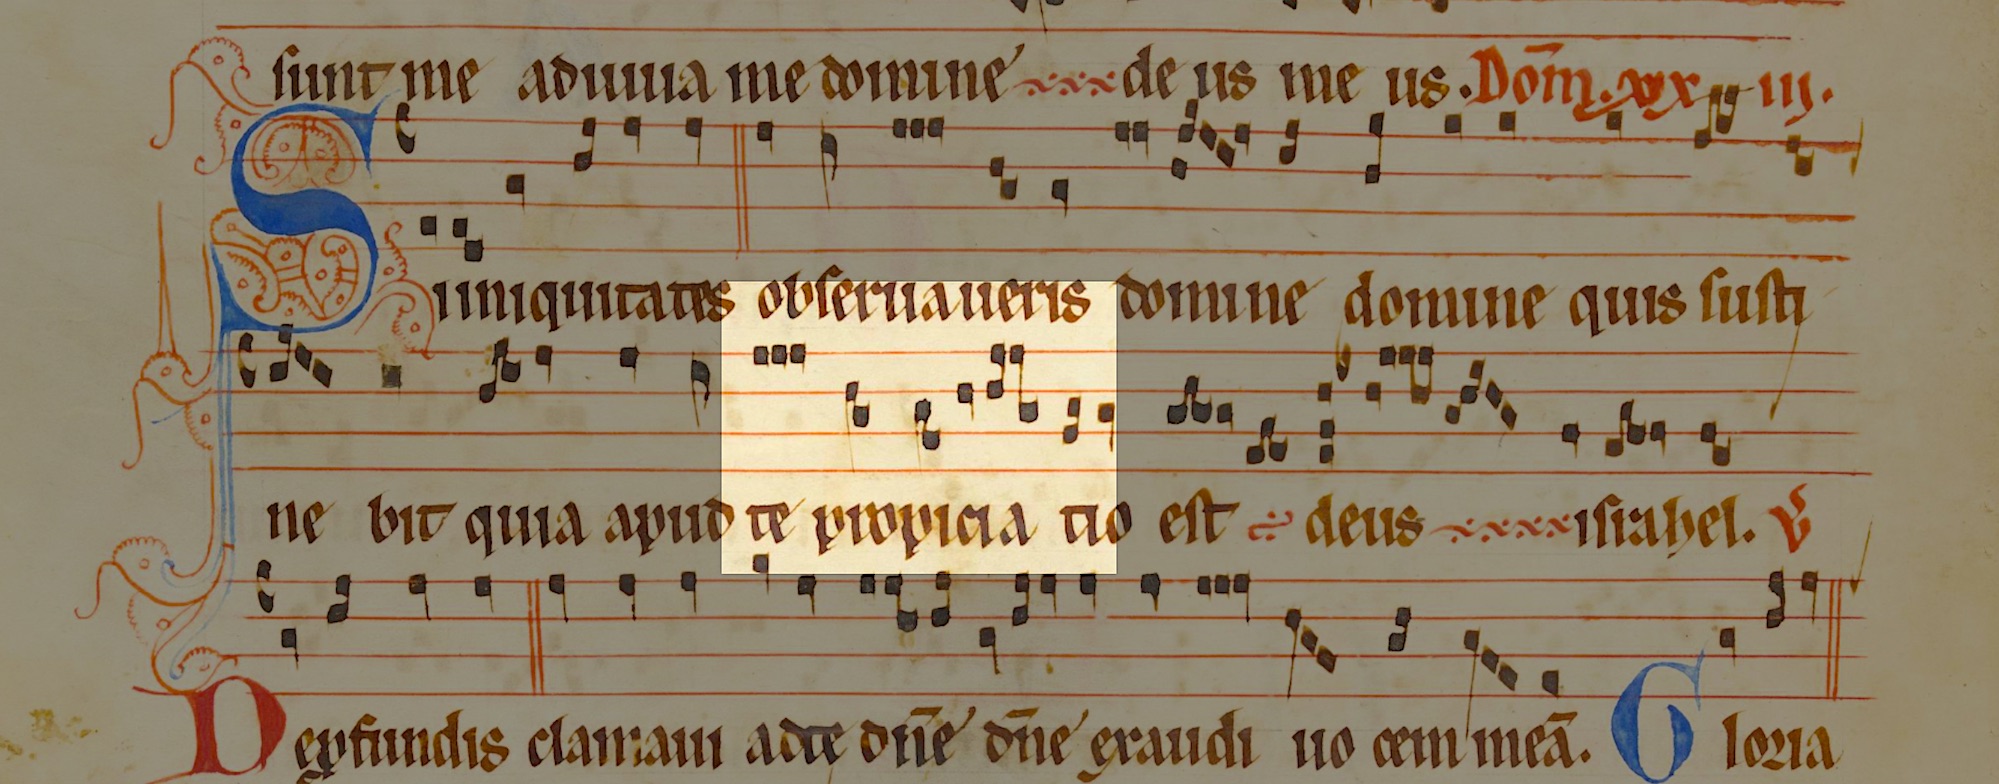 sunt me adiuua me domine de us me us. Dom̄. xx iij.
Si iniquitates obseruaueris domine domine quis susti
ne bit quia apud te propicia tio est deus israhel. ℣
De profundis clamaui ad te dn̄e dn̄e exaudi uo cem meā. Gloria